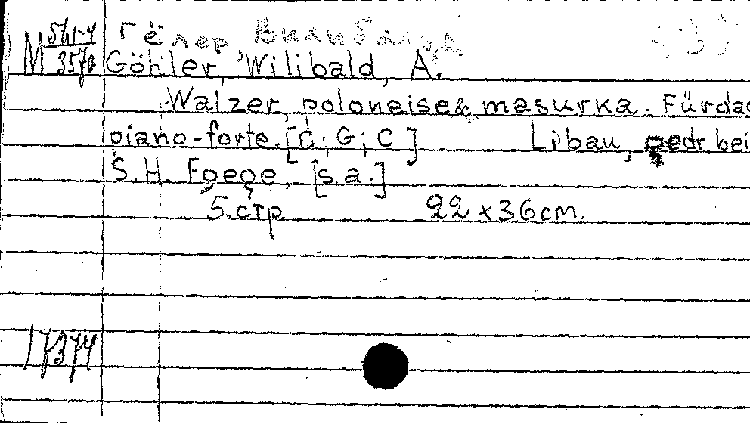 М 541-4/3570
Гёлер, Вилибальд
Göhler, Wilibald, A.
Walzer, polonaise & masurka. Für das
piano-forte. [C; G; C] Libau, gedr bei
S.H. Foege, [s.a.]
5. стр 22 x 36 cm.
17374